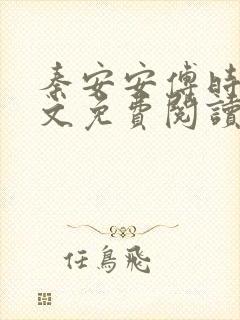 秦安安傅時
文免費閱讀
任鳥飛